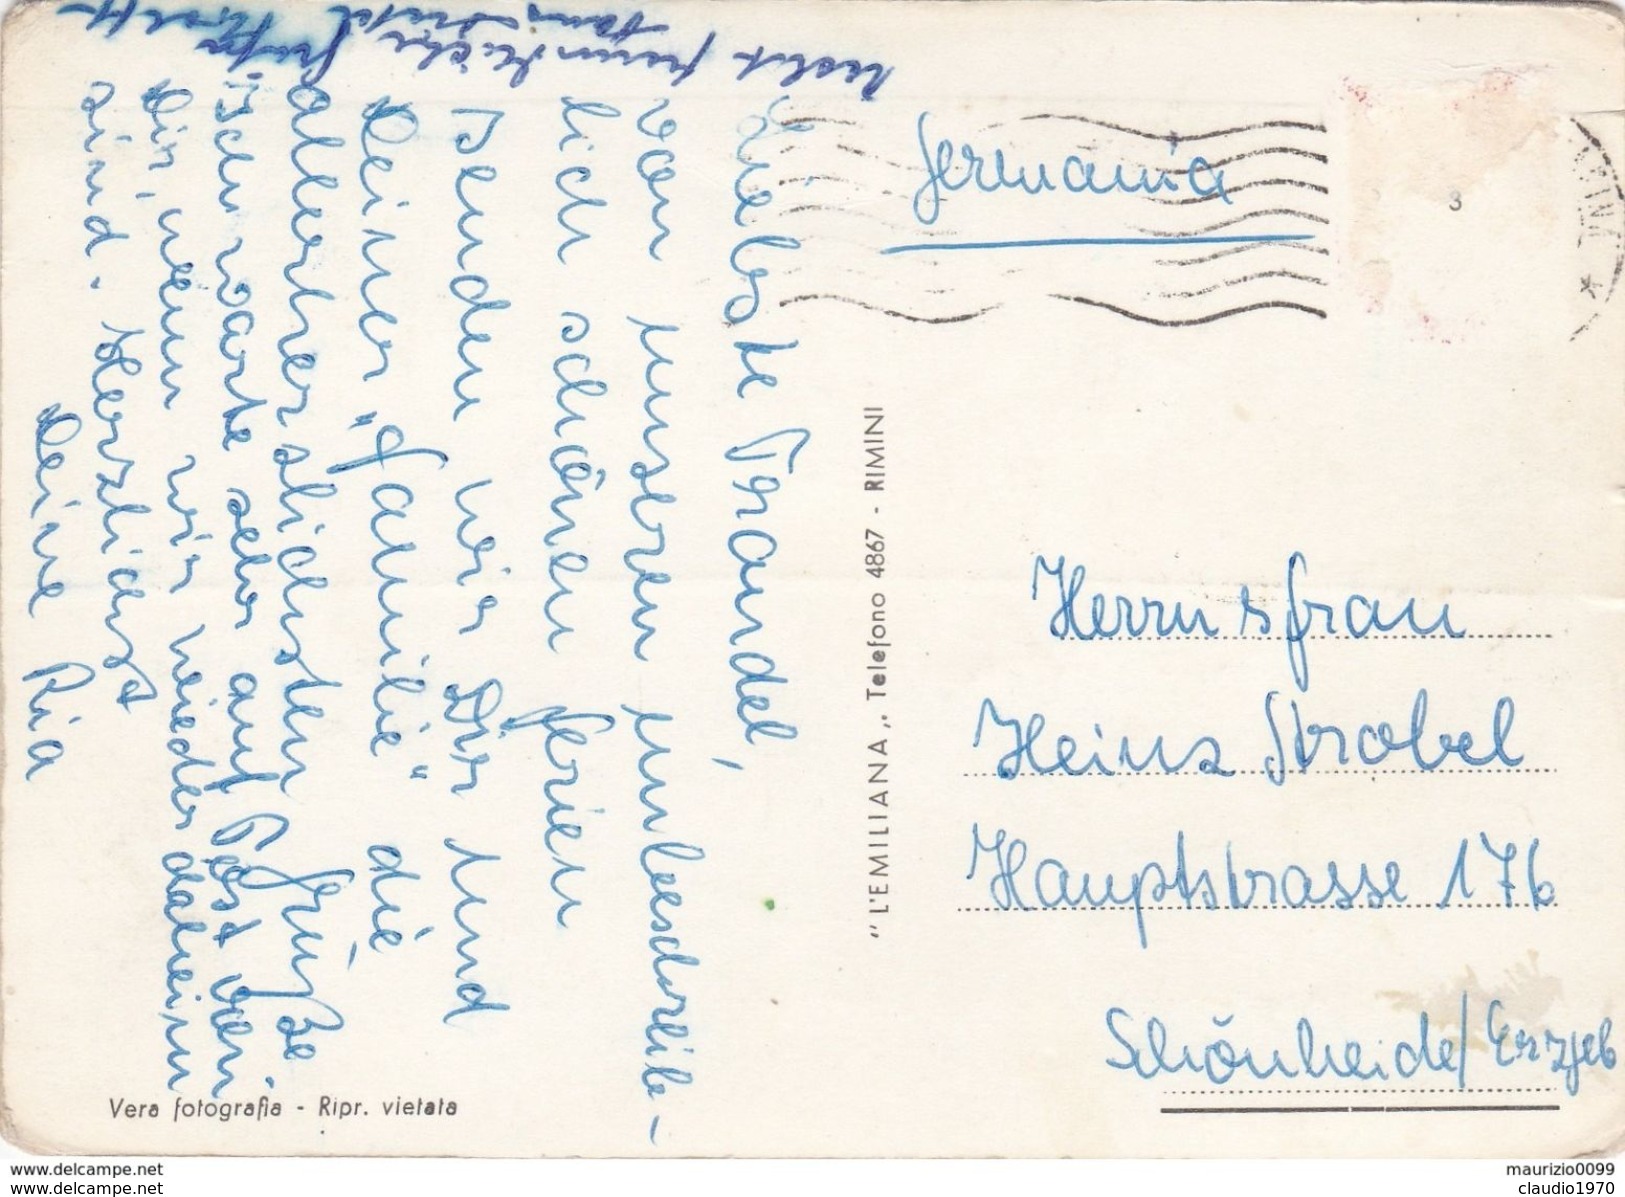 Liebste Trandel,
von unseren unbeschreib-
lich schönen Ferien
senden wir Dir und
Deiner „Familie" die
allerherzlichsten Grüße
Ich warte sehr auf Post von
Dir, wenn wir wieder daheim
sind. Herzlichst
Deine Ria
recht freundliche
Germania
Herrn & frau
Heinz Strobel
Hauptstrasse 176
Schönheide/Erzgeb
"L'EMILIANA„ Telefono 4867 - RIMINI
Vera fotografia - Ripr. vietata
3
www.delcampe.net
www.delcampe.net
maurizio0099
claudio1970